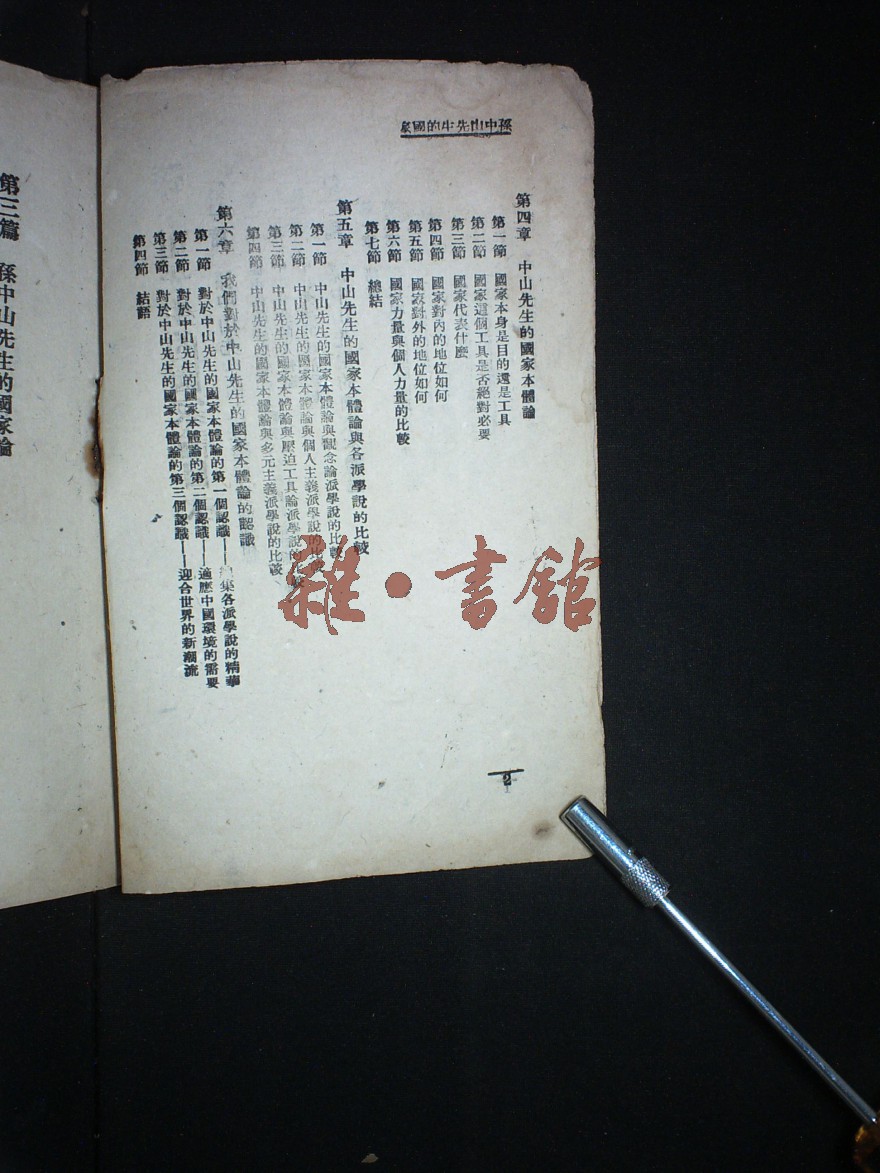 孫中山先生的國家
第四章　中山先生的國家本體論
第一節　國家本身是目的還是工具
第二節　國家這個工具是否絕對必要
第三節　國家代表什麼
第四節　國家對內的地位如何
第五節　國家對外的地位如何
第六節　國家力量與個人力量的比較
第七節　總結
第五章　中山先生的國家本體論與各派學說的比較
第一節　中山先生的國家本體論與觀念論派學說的比較
第二節　中山先生的國家本體論與個人主義派學說的比較
第三節　中山先生的國家本體論與壓迫工具論派學說的比較
第四節　中山先生的國家本體論與多元主義派學說的比較
第六章　我們對於中山先生的國家本體論的認識
第一節　對於中山先生的國家本體論的第一個認識——集各派學說的精華
第二節　對於中山先生的國家本體論的第二個認識——適應中國環境的需要
第三節　對於中山先生的國家本體論的第三個認識——迎合世界的新潮流
第四節　結語
2
第三篇　孫中山先生的國家論
雜·書館